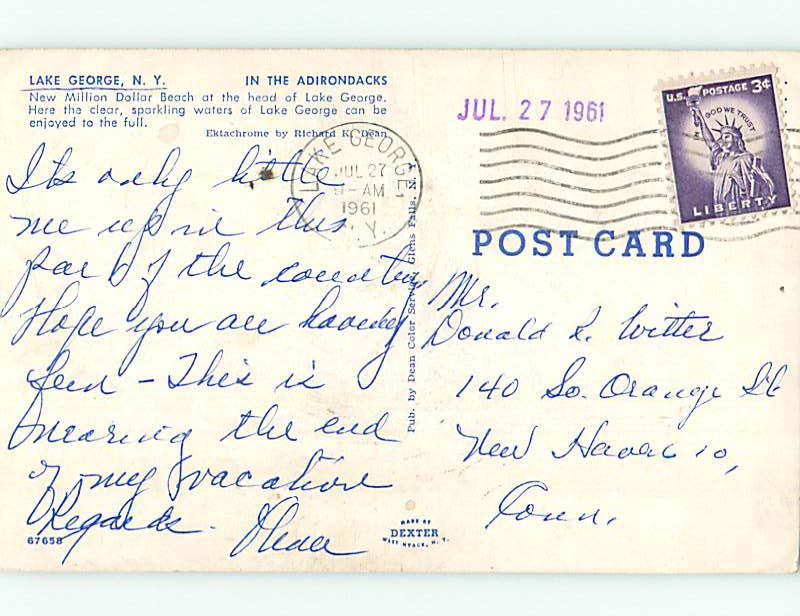 LAKE GEORGE, N. Y. IN THE ADIRONDACKS
New Million Dollar Beach at the head of Lake George.
Here the clear, sparkling waters of Lake George can be
enjoyed to the full.
Ektachrome by Richard K. Dean
It's only little
me up in this
part of the country
Hope you are having
fun - This is
nearing the end
of my vacation
Regards.
67658
Pub. by Dean Color Service, Glens Falls, N. Y.
MADE BY
DEXTER
WEST NYACK, N. Y.
LAKE GEORGE,
JUL 27
AM
1961
N. Y.
JUL. 27 1961
U.S. POSTAGE 3¢
IN GOD WE TRUST
LIBERTY
POST CARD
Mr.
Donald R. Witter
140 So. Orange St
New Haven 10,
Conn.